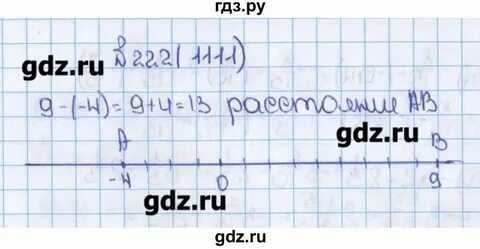 гдз.ру
№222(1111)
gdz.ru
9-(-4)=9+4=13 расстояние AB
gdz.ru
A B
-4 0 9
gdz.ru gdz.ru
gdz.ru